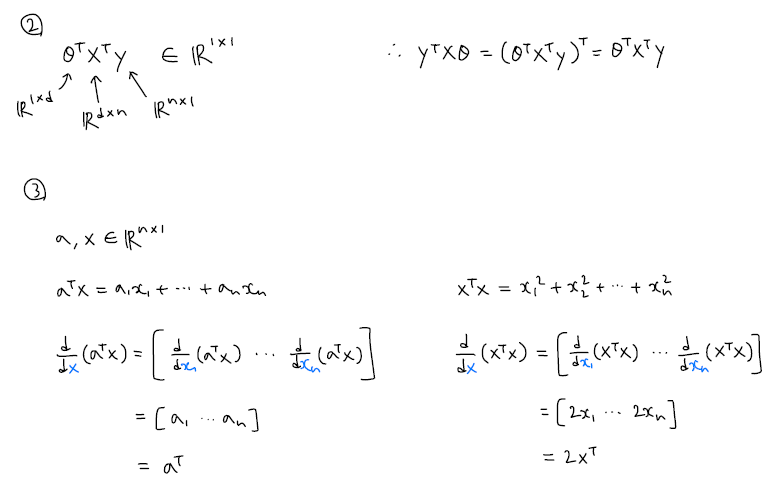 ②
θᵀXᵀy ∈ ℝ¹ˣ¹
∴ yᵀXθ = (θᵀXᵀy)ᵀ = θᵀXᵀy
ℝ¹ˣᵈ ℝᵈˣⁿ ℝⁿˣ¹
③
a, x ∈ ℝⁿˣ¹
aᵀx = a₁x₁ + ⋯ + aₙxₙ
d/dx (aᵀx) = [ d/dx₁ (aᵀx) ⋯ d/dxₙ (aᵀx) ]
= [ a₁ ⋯ aₙ ]
= aᵀ
xᵀx = x₁² + x₂² + ⋯ + xₙ²
d/dx (xᵀx) = [ d/dx₁ (xᵀx) ⋯ d/dxₙ (xᵀx) ]
= [ 2x₁ ⋯ 2xₙ ]
= 2xᵀ